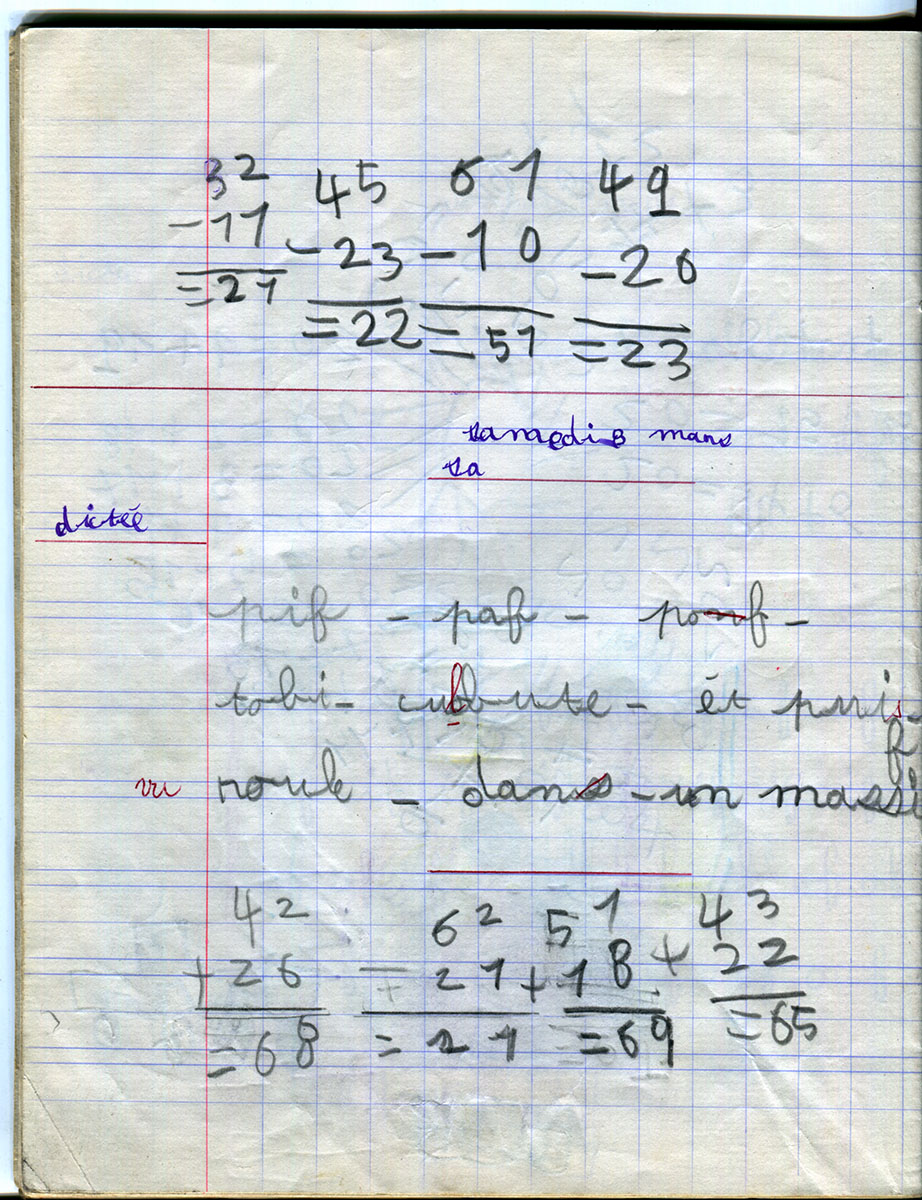 32 45 61 49
-11 -23 -10 -26
=21 =22 =51 =23
samedi 8 mars
sa
dictée
pif - paf - pouf -
tobi - culbute - et puis
f
vu roule - dans - un massi
42 62 51 43
+26 - 21 +18 + 22
=68 = 21 =69 =65